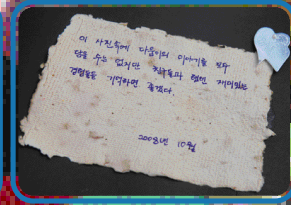 이 사진속에 다음이의 이야기를 모두
담을 수는 없지만 친구들과 했던 재미있는
경험들을 기억하면 좋겠다.
2008년 10월